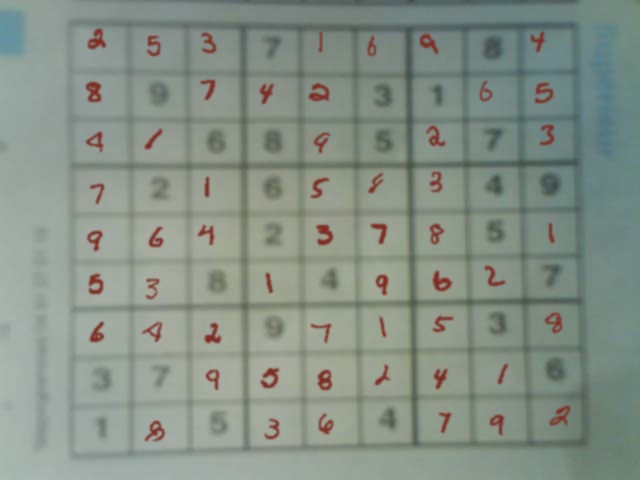 2 5 3 7 1 6 9 8 4
8 9 7 4 2 3 1 6 5
4 1 6 8 9 5 2 7 3
7 2 1 6 5 8 3 4 9
9 6 4 2 3 7 8 5 1
5 3 8 1 4 9 6 2 7
6 4 2 9 7 1 5 3 8
3 7 9 5 8 2 4 1 6
1 8 5 3 6 4 7 9 2